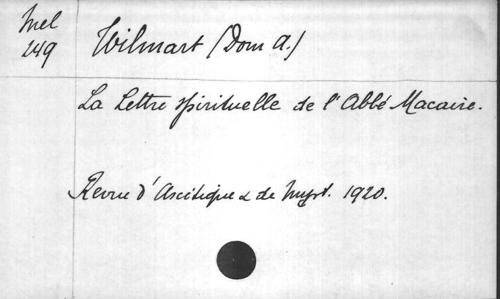 Mel
249
Wilmart (Dom A.)
La Lettre spirituelle de l'Abbé Macaire.
Revue d'Ascétique & de Myst. 1920.